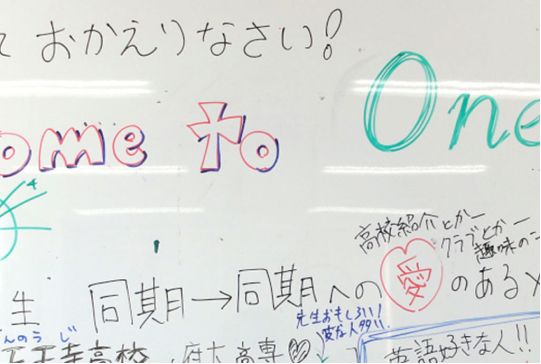 て おかえりなさい!
ome to One
高校紹介とかー
クラブとかー
趣味の
生 同期→同期への愛のある
んのうじ
天王寺高校、府大高専♡
先生おもしろい!
変な人多い!
英語好きな人!!